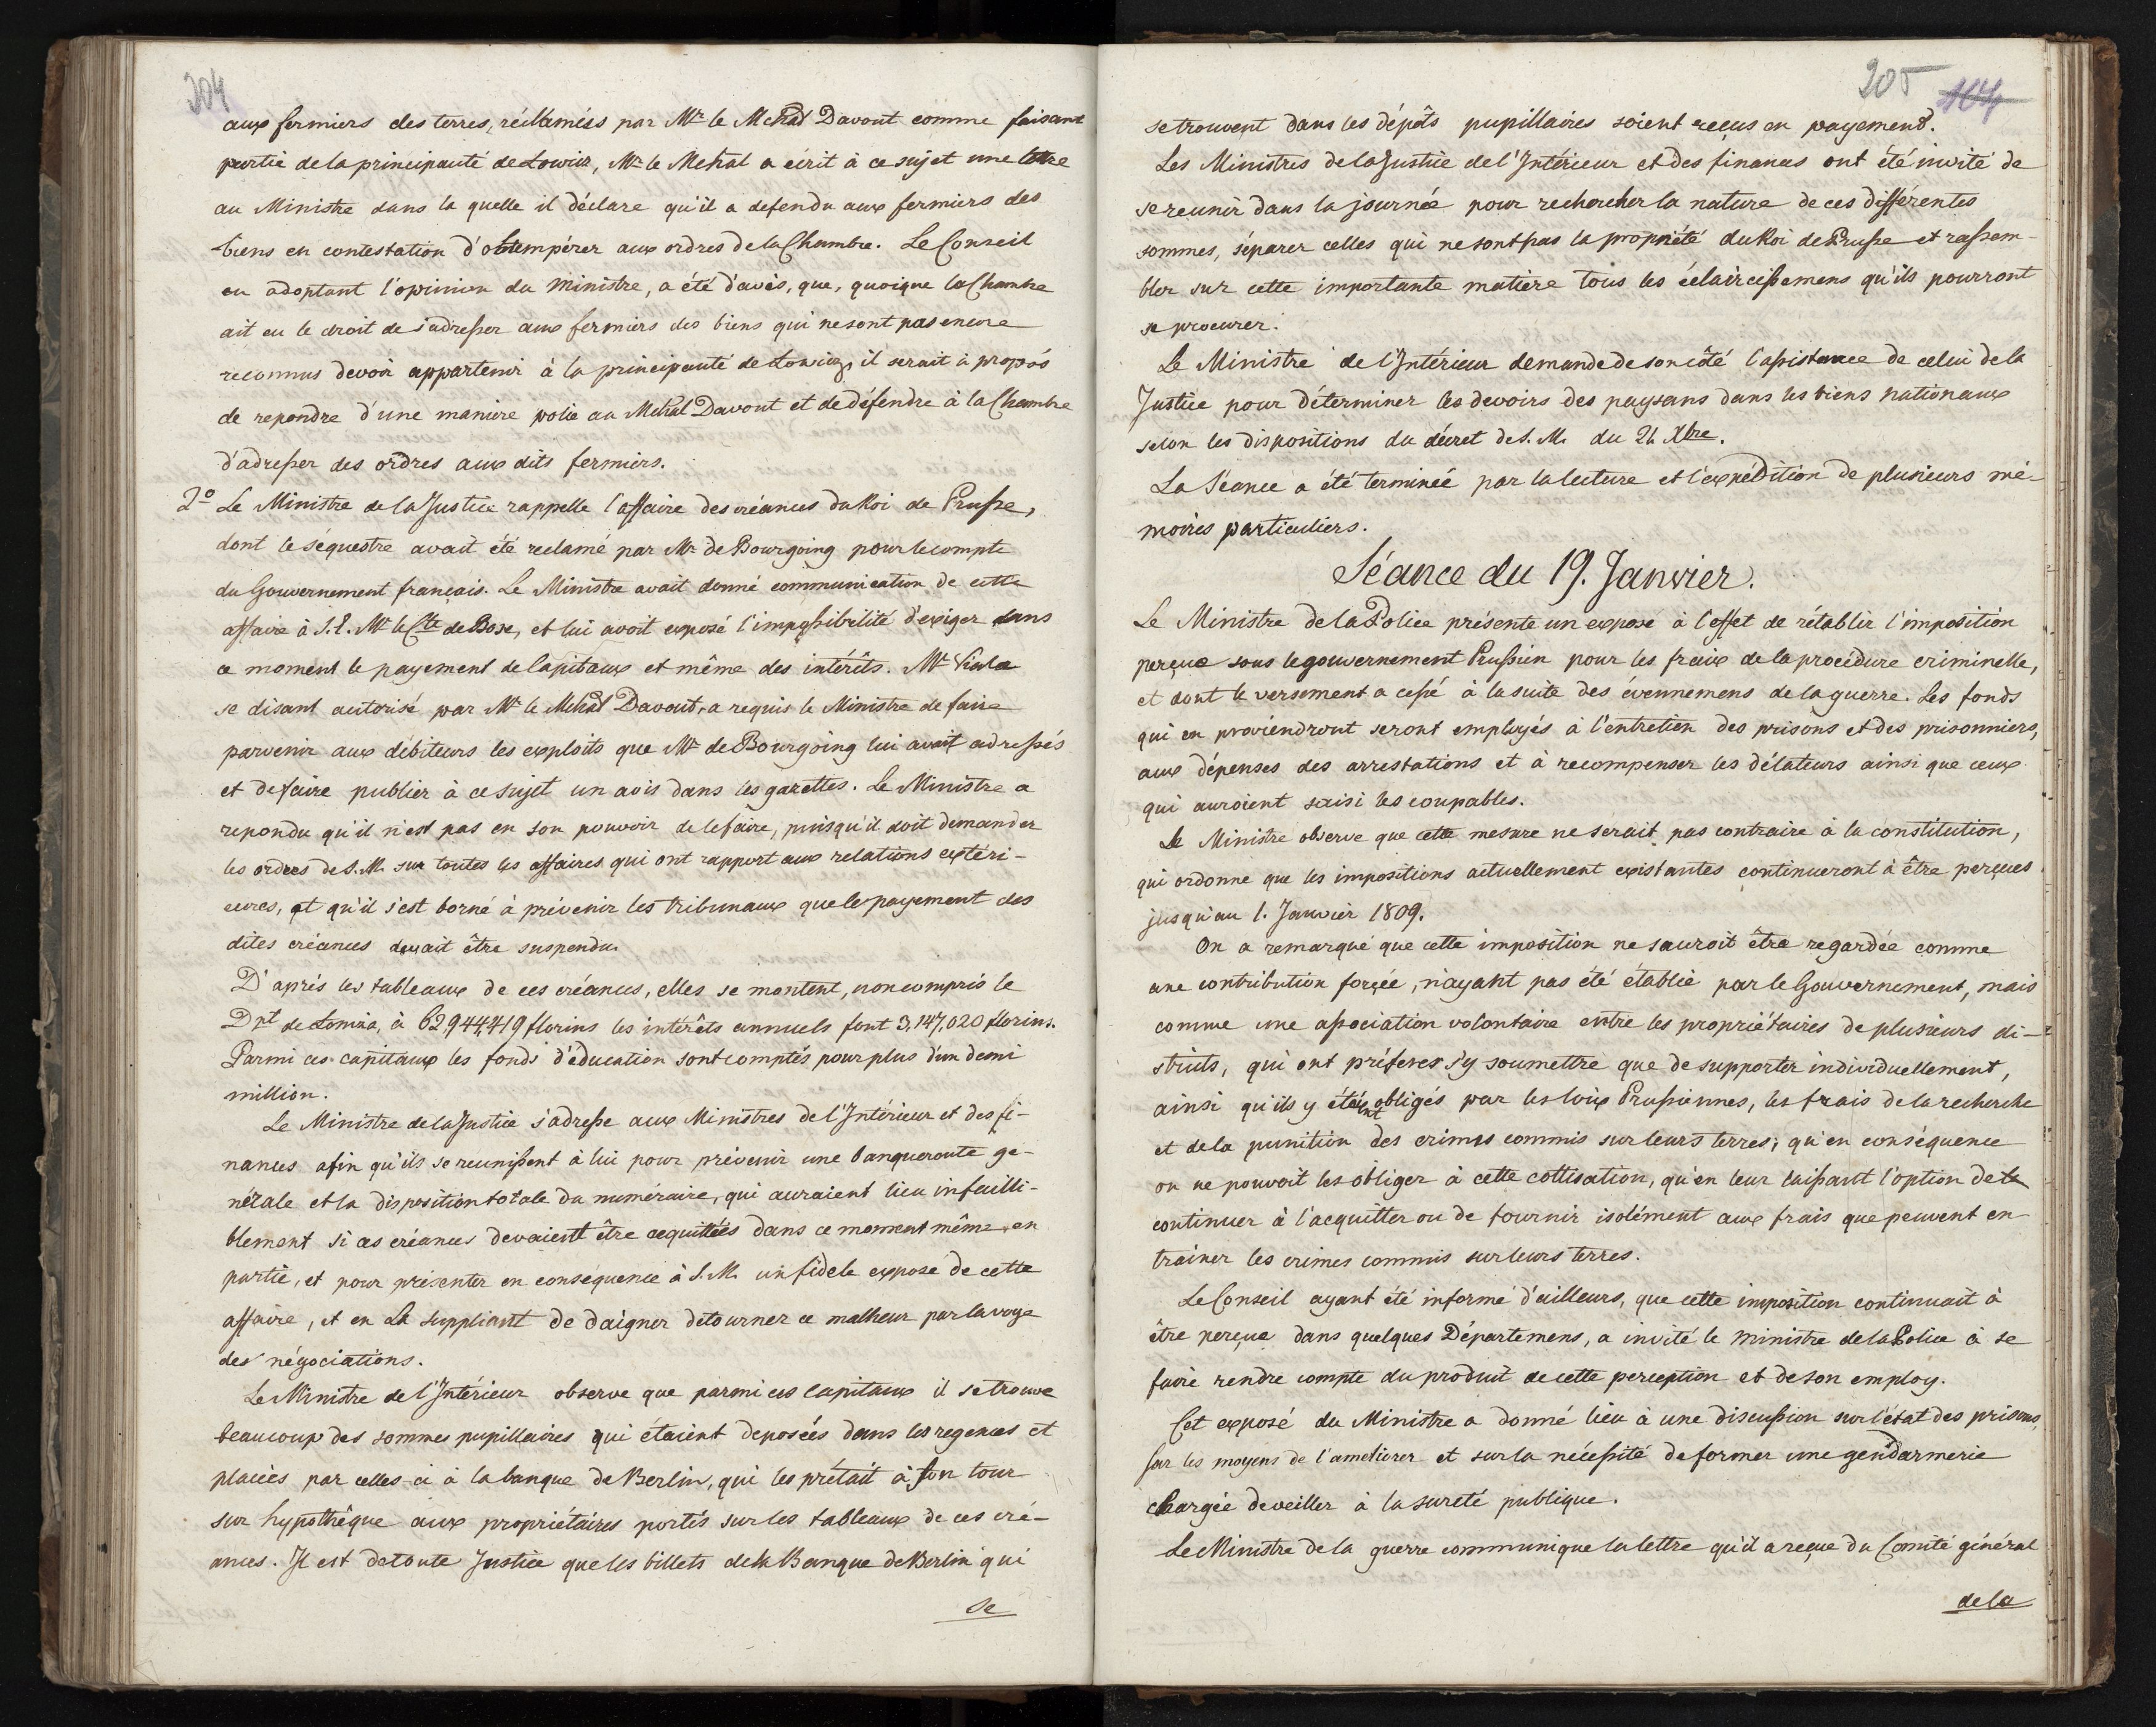 204
aux fermiers des terres, réclamées par Mr le Mchal Davout comme faisant
partie de la principauté de Lowicz, Mr le Mchal a écrit à ce sujet une lettre
au Ministre dans la quelle il déclare qu'il a defendu aux fermiers des
biens en contestation d'obtempérer aux ordres de la Chambre. Le Conseil
en adoptant l'opinion du Ministre, a été d'avis, que, quoique la Chambre
ait eu le droit de s'adresser aux fermiers des biens qui ne sont pas encore
reconnus devoir appartenir à la principauté de Lowicz, il serait à propos
de repondre d'une maniere polie au Mchal Davout et de défendre à la Chambre
d'adresser des ordres aux dits fermiers.
2o Le Ministre de la Justice rappelle l'affaire des créances du Roi de Prusse,
dont le séquestre avait été reclamé par Mr de Bourgoing pour le compte
du Gouvernement français. Le Ministre avait donné communication de cette
affaire à S.E. Mr le Cte de Bose, et lui avoit exposé l'impossibilité d'exiger dans
ce moment le payement de Capitaux et même des intérêts. Mr
se disant autorisé par Mr le Mchal Davout, a requis le Ministre de faire
parvenir aux débiteurs les exploits que Mr de Bourgoing lui avait adressés
et de faire publier à ce sujet un avis dans les gazettes. Le Ministre a
repondu qu'il n'est pas en son pouvoir de le faire, puisqu'il doit demander
les ordres de S.M. sur toutes les affaires qui ont rapport aux relations extéri-
eures, et qu'il s'est borné à prévenir les tribunaux que le payement des
dites créances devait être suspendu.
D'après les tableaux de ces créances, elles se montent, non compris le
Dpt de Lomża, à 62944419 florins les intérêts annuels font 3,147,020 florins.
Parmi ces capitaux les fonds d'éducation sont comptés pour plus d'un demi
million.
Le Ministre de la Justice s'adresse aux Ministres de l'Intérieur et des fi-
nances afin qu'ils se reunissent à lui pour prévenir une banqueroute gé-
nérale et la disposition totale du numéraire, qui auraient lieu infailli-
blement si ces créances devaient être acquittées dans ce moment même en
partie, et pour présenter en conséquence à S.M. un fidele exposé de cette
affaire, et en La suppliant de daigner détourner ce malheur par la voye
des négociations.
Le Ministre de l'Intérieur observe que parmi ces capitaux il se trouve
beaucoup des sommes pupillaires qui étaient deposées dans les regences et
placées par celles-ci à la banque de Berlin, qui les prétait à son tour
sur hypothêque aux propriétaires portés sur les tableaux de ces cré-
ances. Il est de toute Justice que les billets de la Banque de Berlin qui
se
205 104
se trouvent dans les dépôts pupillaires soient reçus en payement.
Les Ministres de la Justice de l'Intérieur et des finances ont été invité de
se reunir dans la journée pour rechercher la nature de ces différentes
sommes, séparer celles qui ne sont pas la propriété du Roi de Prusse et rassem-
bler sur cette importante matière tous les éclaircissemens qu'ils pourront
se procurer.
Le Ministre de l'Intérieur demande de son côté l'assistance de celui de la
Justice pour déterminer les devoirs des paysans dans les biens nationaux
selon les dispositions du décret de S.M. du 21 Xbre.
La Séance a été terminée par la lecture et l'expédition de plusieurs mé-
moires particuliers.
Séance du 19. Janvier.
Le Ministre de la Police présente un exposé à l'effet de rétablir l'imposition
perçue sous le gouvernement Prussien pour les fraix de la procédure criminelle,
et dont le versement a cessé à la suite des évennemens de la guerre. Les fonds
qui en proviendront seront employés à l'entretien des prisons et des prisonniers,
aux dépenses des arrestations et à recompenser les délateurs ainsi que ceux
qui auroient saisi les coupables.
Le Ministre observe que cette mesure ne serait pas contraire à la constitution,
qui ordonne que les impositions actuellement existantes continueront à être perçues
jusqu'au 1. Janvier 1809.
On a remarqué que cette imposition ne sauroit être regardée comme
une contribution forçée, n'ayant pas été établie par le Gouvernement, mais
comme une association volontaire entre les propriétaires de plusieurs di-
stricts, qui ont préferer s'y soumettre que de supporter individuellement,
ainsi qu'ils y étaient obligés par les loix Prussiennes, les frais de la recherche
et de la punition des crimes commis sur leurs terres; qu'en conséquence
on ne pouvoit les obliger à cette cottisation, qu'en leur laissant l'option de
continuer à l'acquitter ou de fournir isolément aux frais que peuvent en
trainer les crimes commis sur leurs terres.
Le Conseil ayant été informé d'ailleurs, que cette imposition continuait à
être perçue dans quelques Départemens, a invité le Ministre de la Police à se
faire rendre compte du produit de cette perception et de son employ.
Cet exposé du Ministre a donné lieu à une discussion sur l'état des prisons,
sur les moyens de l'ameliorer et sur la nécessité de former une gendarmerie
chargée de veiller à la sureté publique.
Le Ministre de la guerre communique la lettre qu'il a reçue du Comité général
de la